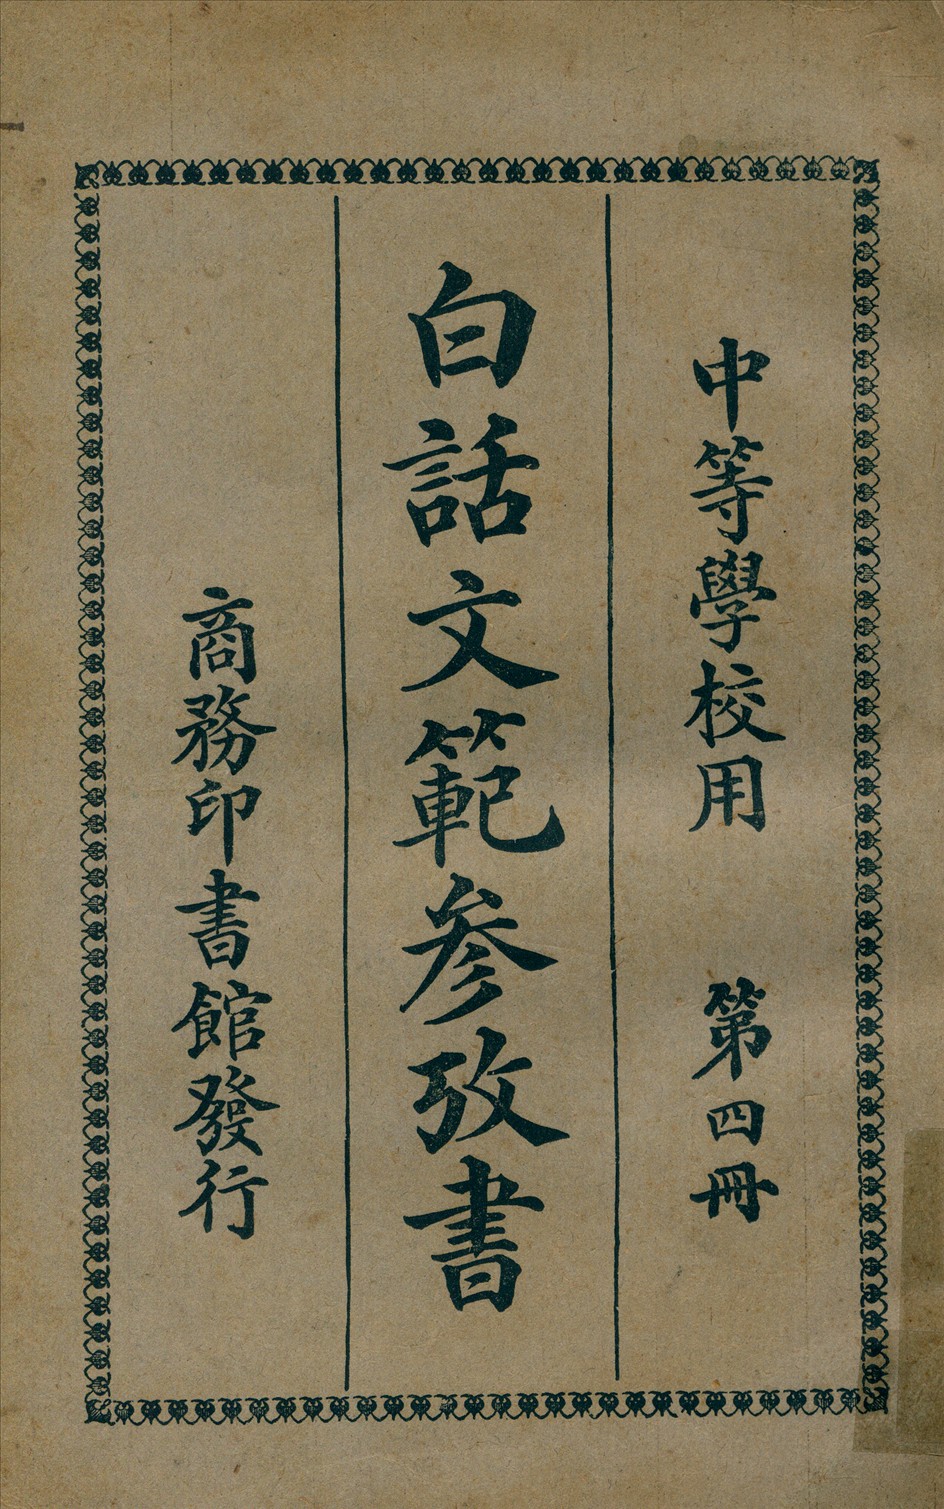 中等學校用 第四冊
白話文範參攷書
商務印書館發行